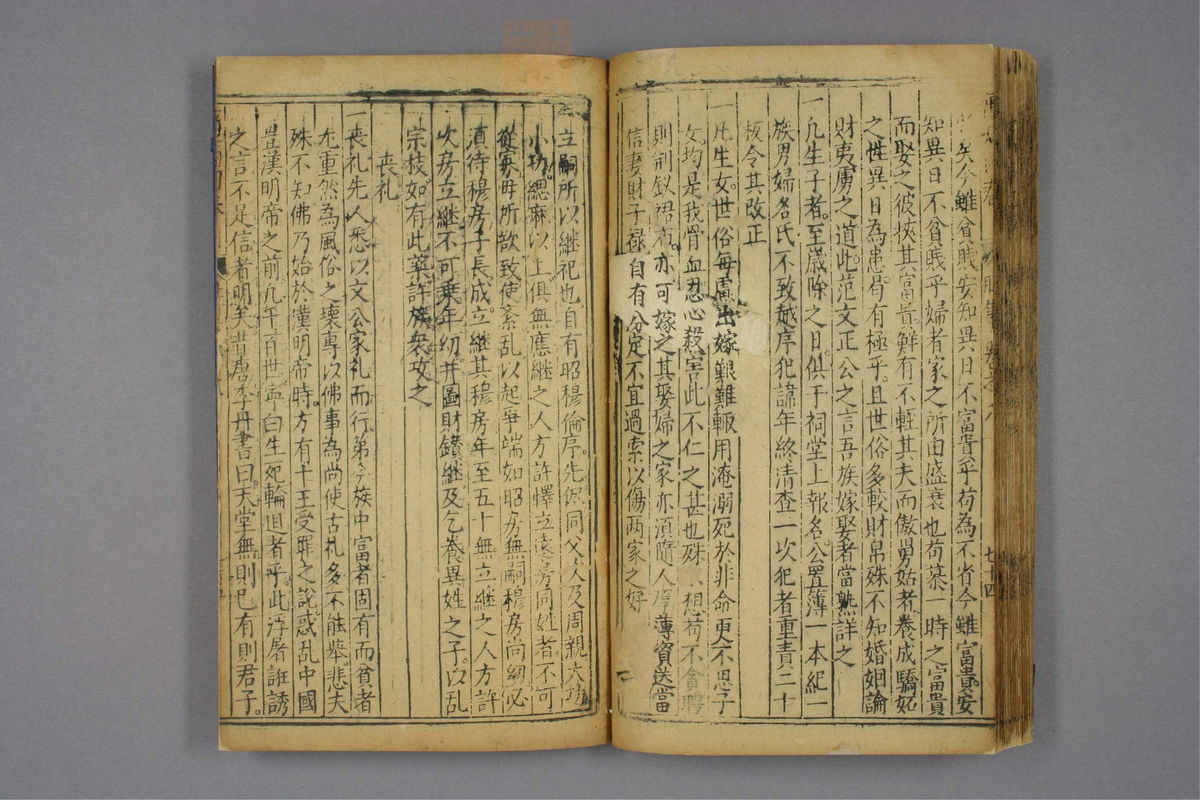 矣今雖貧賤安知異日不富貴乎苟為不肖今雖富貴安
知異日不貧賤乎婦者家之所由盛衰也苟慕一時之富貴
而娶之彼挾其富貴鮮有不輕其夫而傲舅姑者養成驕妬
之性異日為患曷有極乎且世俗多較財帛殊不知婚姻論
財夷虜之道此范文正公之言吾族嫁娶者當熟詳之
一凡生子者至歲除之日俱于祠堂上報名公置簿一本紀一
族男婦名氏不致越序犯諱年終清查一次犯者重責二十
板令其改正
一凡生女世俗每慮出嫁艱難輙用淹溺死於非命更不思子
女均是我骨血忍心殺害此不仁之甚也殊 想苟不貪聘
則荊釵裙布亦可嫁之其娶婦之家亦須隨人厚薄資送當
信妻財子祿自有分定不宜過索以傷兩家之好
立嗣所以繼祀也自有昭穆倫序先侭同父次及周親大功
小功緦麻以上俱無應繼之人方許擇立遠房同姓者不可
從寡母所欲致使紊亂以起爭端如昭房無嗣穆房尚幼必
須待穆房子長成立繼其穆房年至五十無立繼之人方許
次房立繼不可乗年幼并圖財錯繼及乞養異姓之子以乱
宗枝如有此獘許族衆攻之
喪礼
一喪礼先人悉以文公家礼而行第今族中富者固有而貧者
尤重然為風俗之壞專以佛事為尚使古礼多不能舉悲夫
殊不知佛乃始於漢明帝時方有十王受罪之說惑乱中國
豈漢明帝之前九千百世盃曰生死輪迴者乎此浮屠誑誘
之言不足信者明矣昔唐李丹書曰天堂無則已有則君子